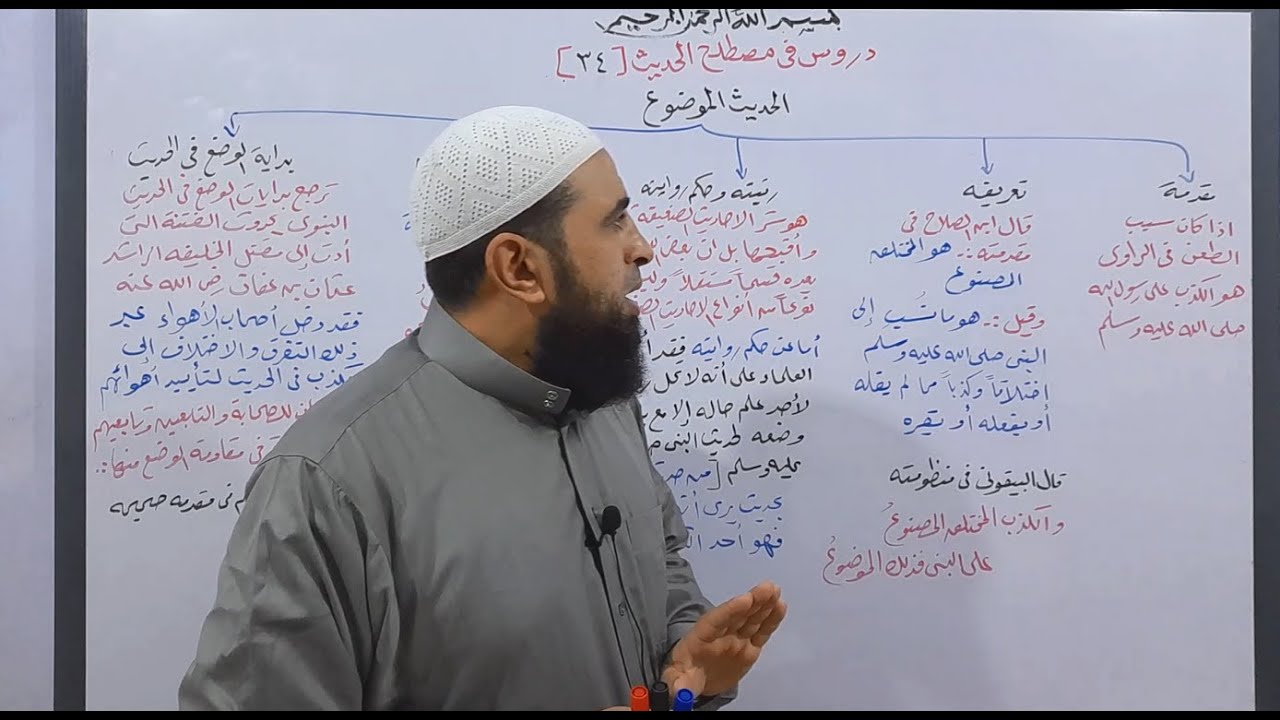 بسم الله الرحمن الرحيم
دروس في مصطلح الحديث [٣٤]
الحديث الموضوع
مقدمة
اذا كان سبب
الطعن في الراوي
هو الكذب على رسول الله
صلى الله عليه وسلم
تعريفه
قال ابن الصلاح في
مقدمته :. هو المختلق
المصنوع
وقيل :. هو ما نُسب إلى
النبي صلى الله عليه وسلم
اختلاقاً وكذباً مما لم يقله
أو يفعله أو يقره
قال البيقوني في منظومته
والكذب المختلق المصنوعُ
على النبي فذلك الموضوعُ
رتبته وحكم روايته
هو شر الاحاديث الضعيفة
وأقبحها بل ان بعض
يعده قسماً مستقلاً وليس
نوعاً من أنواع الاحاديث
أما عن حكم روايته فقد
العلماء على أنه لا تحل
لأحد علم حاله إلا مع
وضعه لحديث النبي
عليه وسلم [من
بحديث يرى
فهو أحد
بداية الوضع في الحديث
ترجع بدايات الوضع في الحديث
النبوي بحدوث الفتنة التي
أدت إلى مقتل الخليفة الراشد
عثمان بن عفان رضي الله عنه
فقد دخل أصحاب الأهواء عبر
ذلك التفرق والاختلاف إلى
الكذب في الحديث لتأييد أهوائهم
للصحابة والتابعين وتابعيهم
في مقاومة الوضع منها :.
في مقدمة صحيحه